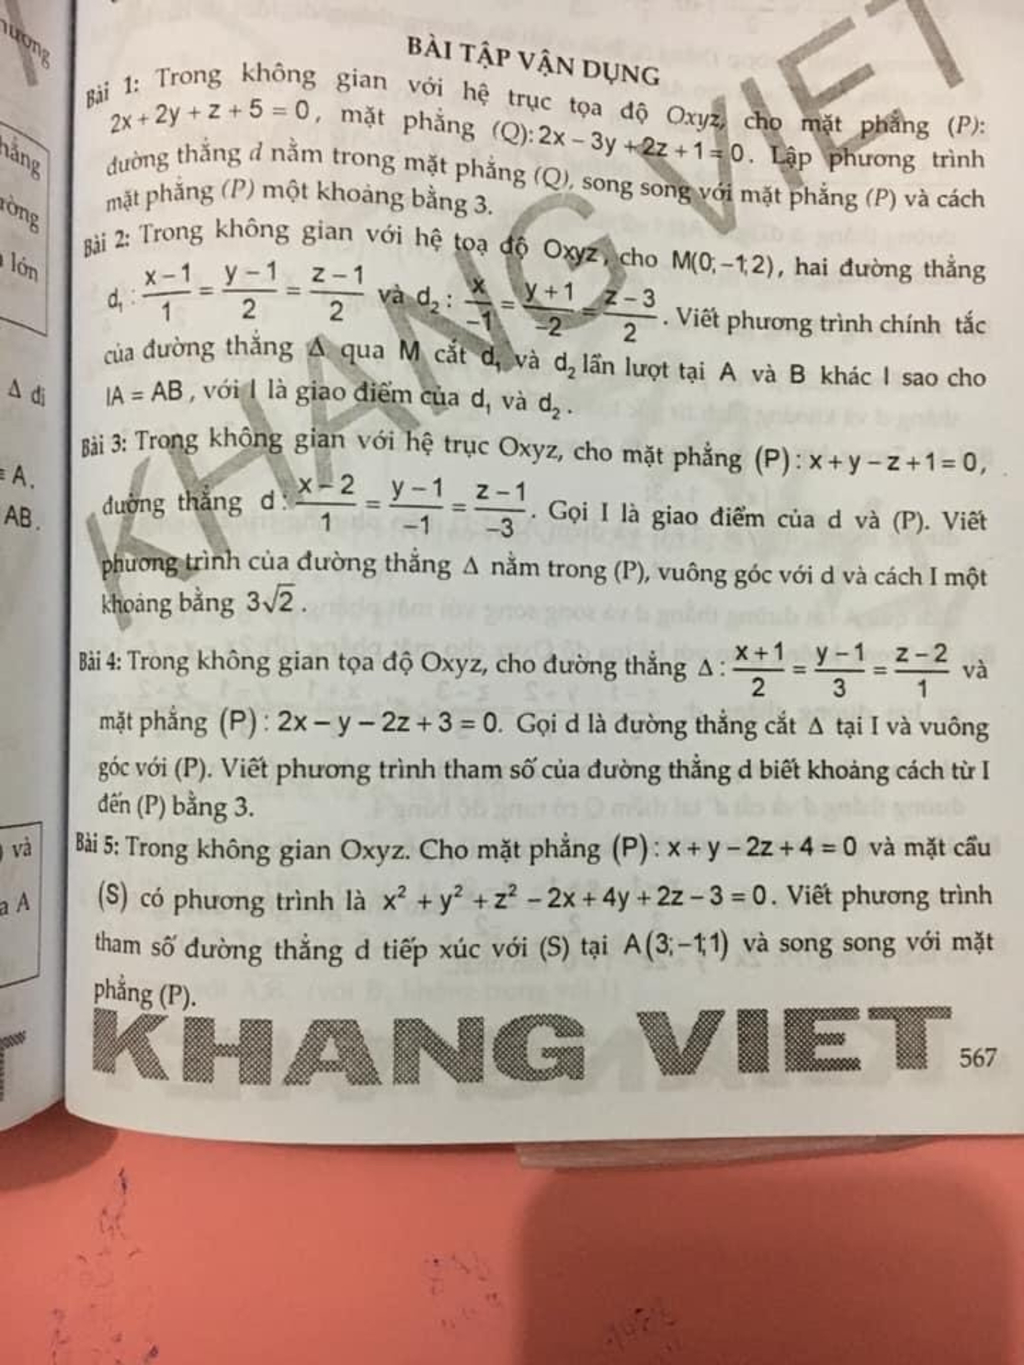 BÀI TẬP VẬN DỤNG
Bài 1: Trong không gian với hệ trục tọa độ Oxyz, cho mặt phẳng (P):
2x + 2y + z + 5 = 0, mặt phẳng (Q): 2x − 3y + 2z + 1 = 0. Lập phương trình
đường thẳng d nằm trong mặt phẳng (Q), song song với mặt phẳng (P) và cách
mặt phẳng (P) một khoảng bằng 3.
Bài 2: Trong không gian với hệ toạ độ Oxyz, cho M(0;−1;2), hai đường thẳng
d₁ : (x − 1)/1 = (y − 1)/2 = (z − 1)/2 và d₂ : x/−1 = (y + 1)/−2 = (z − 3)/2. Viết phương trình chính tắc
của đường thẳng Δ qua M cắt d₁ và d₂ lần lượt tại A và B khác I sao cho
IA = AB, với I là giao điểm của d₁ và d₂.
Bài 3: Trong không gian với hệ trục Oxyz, cho mặt phẳng (P) : x + y − z + 1 = 0,
đường thẳng d : (x − 2)/1 = (y − 1)/−1 = (z − 1)/−3. Gọi I là giao điểm của d và (P). Viết
phương trình của đường thẳng Δ nằm trong (P), vuông góc với d và cách I một
khoảng bằng 3√2.
Bài 4: Trong không gian tọa độ Oxyz, cho đường thẳng Δ : (x + 1)/2 = (y − 1)/3 = (z − 2)/1 và
mặt phẳng (P) : 2x − y − 2z + 3 = 0. Gọi d là đường thẳng cắt Δ tại I và vuông
góc với (P). Viết phương trình tham số của đường thẳng d biết khoảng cách từ I
đến (P) bằng 3.
Bài 5: Trong không gian Oxyz. Cho mặt phẳng (P) : x + y − 2z + 4 = 0 và mặt cầu
(S) có phương trình là x² + y² + z² − 2x + 4y + 2z − 3 = 0. Viết phương trình
tham số đường thẳng d tiếp xúc với (S) tại A(3;−1;1) và song song với mặt
phẳng (P).
KHANG VIET
567
KHANG VIET
hằng
lớn
Δ đi
A.
AB.
và
A